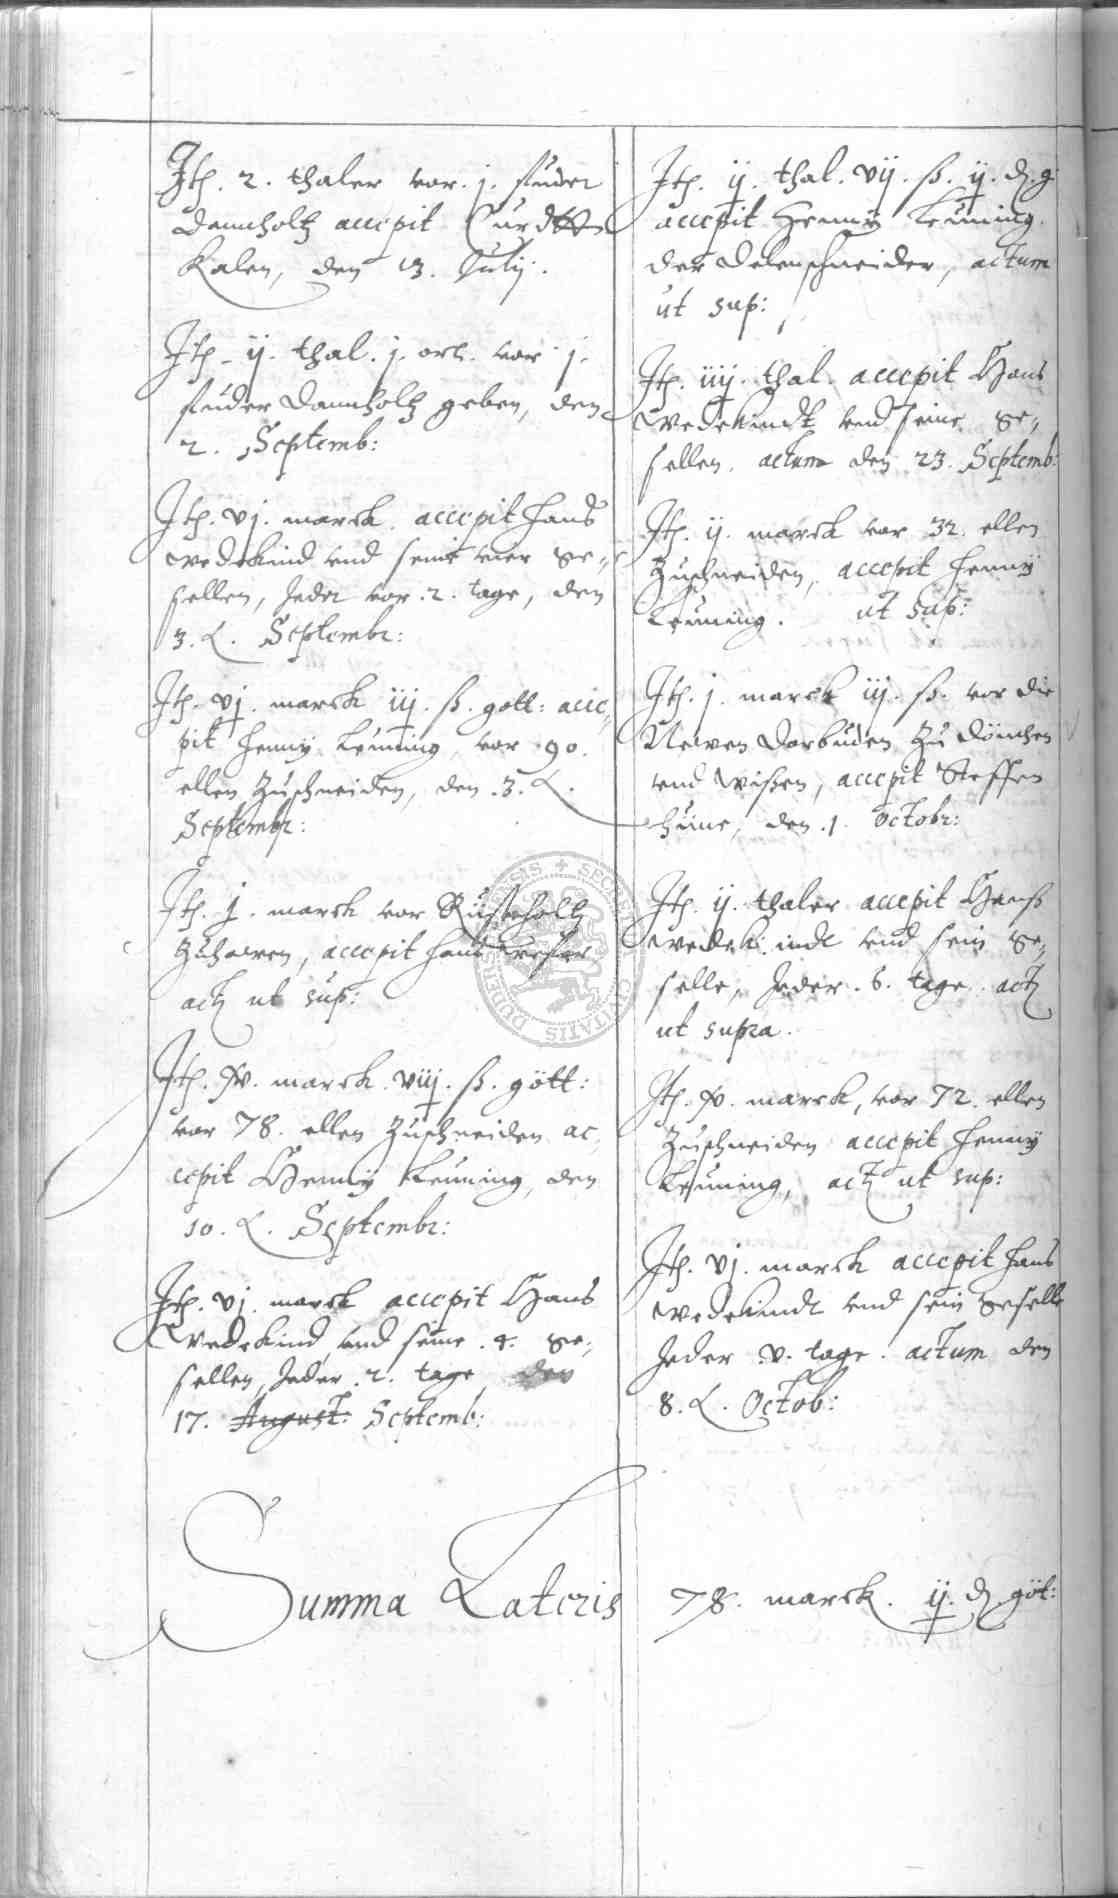 Ith. 2. thaler vor. j. fuder
Dannholtz accepit Curdtt
Kalen, den 13. Julij.
Ith. ij. thal. j. ort. vor j.
fuder Dannholtz geben, den
2. Septemb:
Ith. vj. marck. accepit Hans
Wedekind vnd seine vier Ge-
sellen, Jeder vor. 2. tage, den
3. L. Septembr:
Ith. vj. marck iij. ß. gott: acce-
pit Henny Leuning, vor 90.
ellen Zuschneiden, den .3. L.
Septembr:
Ith. j. marck vor Rusteholtz
Zuhawen, accepit Hans
act ut sup:
Ith. xv. marck. viij. ß. gött:
vor 78. ellen Zuschneiden ac-
cepit Henny Leuning, den
10. L. Septembr:
Ith. vj. marck accepit Hans
Wedekind vnd seine .4. Ge-
sellen, Jeder .2. tage, den
17. August. Septemb:
Ith. ij. thal. vij. ß. ij. d. g.
accepit Henny Leuning.
der Delenschneider, actum
ut sup:
Ith. iiij. thal. accepit Hans
Wedekindt vnd seine Ge-
sellen. actum den 23. Septemb:
Ith. ij. marck vor 32. ellen
Zuschneiden, accepit Henny
Leuning. ut sup:
Ith. j. marck iij. ß. vor die
Newen Dorbuden Zu dönchen
vnd Wißen, accepit Steffen
Hüne, den .1. Octobr:
Ith. ij. thaler accepit Hanß
Wedekindt vnd sein Ge-
selle, Jeder. 6. tage. act
ut supra.
Ith. xv. marck, vor 72. ellen
Zuschneiden accepit Henny
Leuning, act ut sup:
Ith. vj. marck accepit Hans
Wedekindt vnd sein Geselle
Jeder .v. tage. actum den
8. L. Octob:
Summa Lateris 78. marck. ij. d. göt:
SECRET CIVITATIS DUDER ENSIS